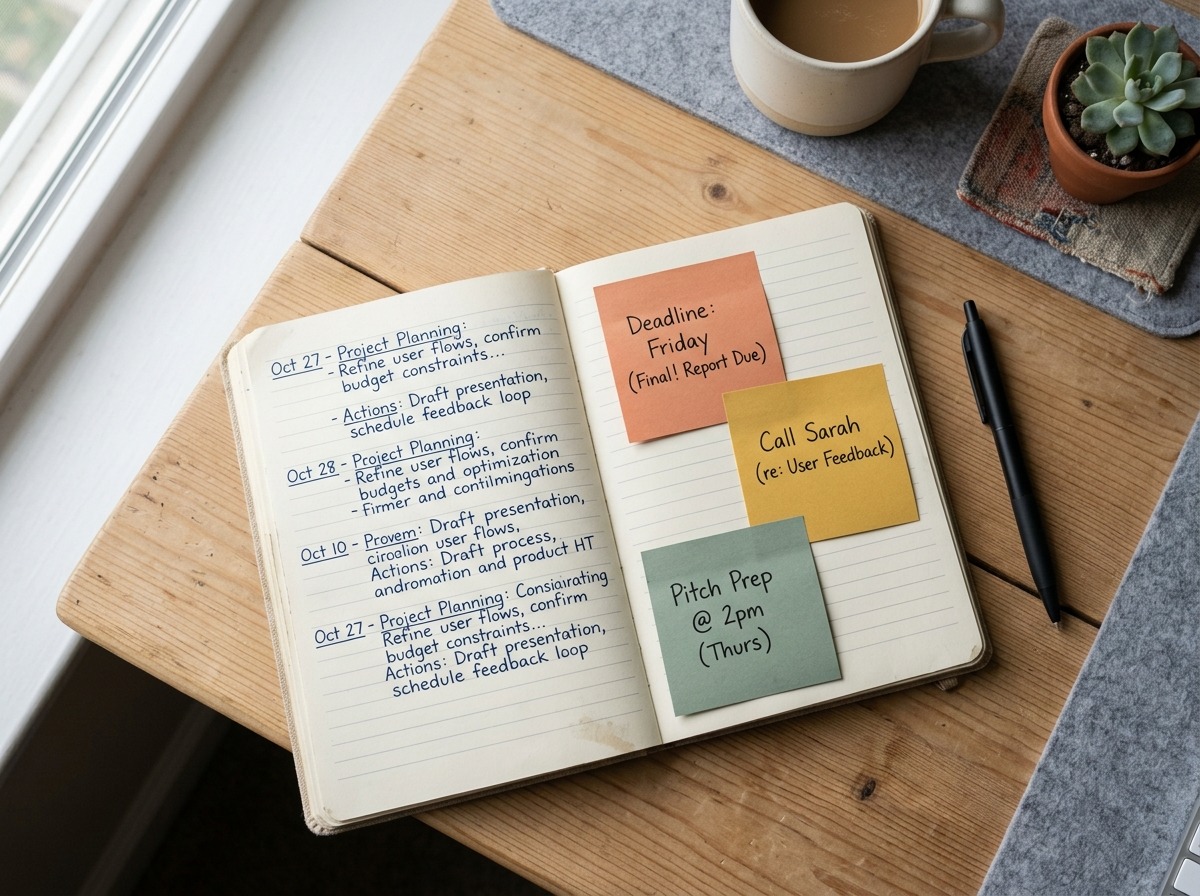 Oct 27 - Project Planning:
- Refine user flows, confirm
budget constraints...
- Actions: Draft presentation,
schedule feedback loop
Oct 28 - Project Planning:
- Refine user flows, confirm
budgets and optimization
- Firmer and contilmingations
Oct 10 - Provem: Draft presentation,
circulion user flows,
Actions: Draft process,
andromation and product HT
Oct 27 - Project Planning: Consiairating
Refine user flows, confirm
budget constraints...
Actions: Draft presentation,
schedule feedback loop
Deadline:
Friday
(Final! Report Due)
Call Sarah
(re: User Feedback)
Pitch Prep
@ 2pm
(Thurs)